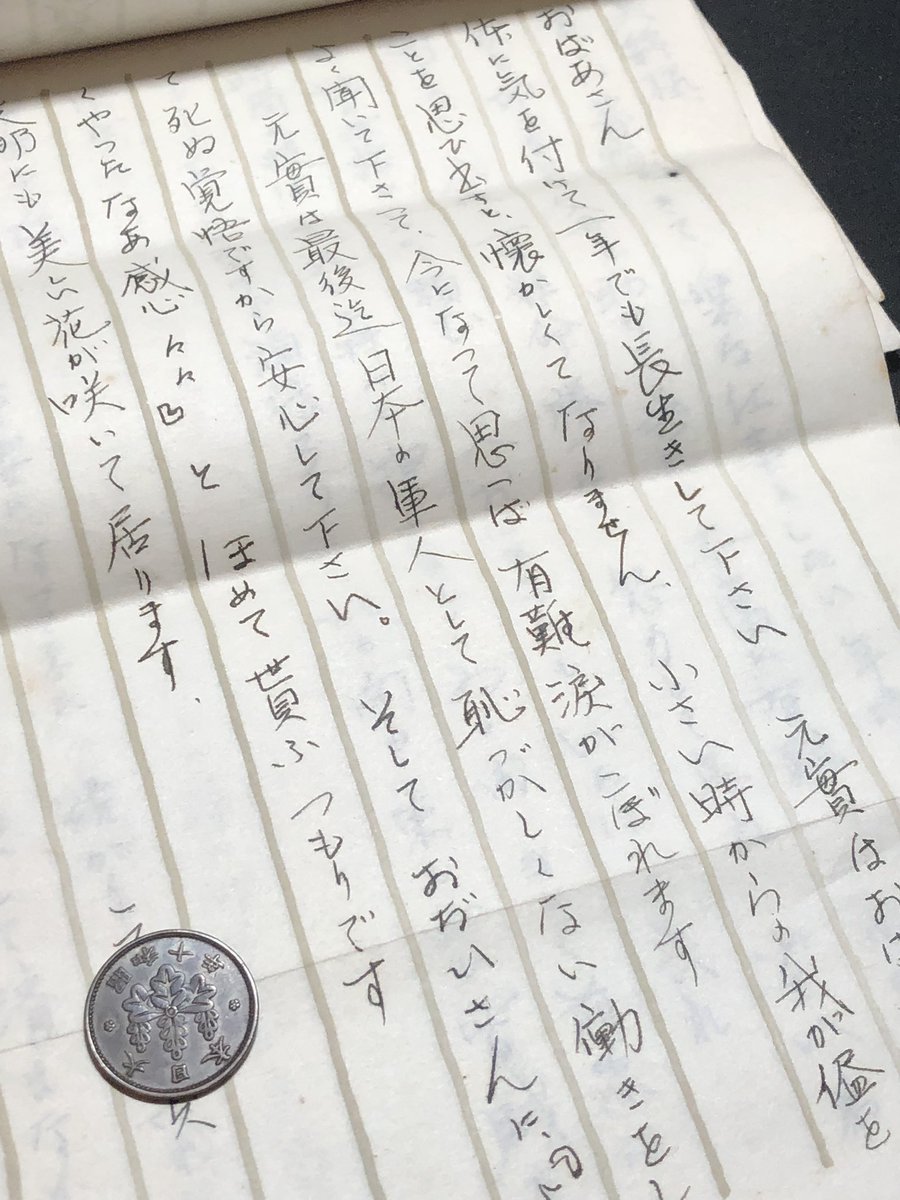 おばあさん
体に気を付けて一年でも長生きして下さい 元實はおば
ことを思ひ出すと、懐かしくてなりません、小さい時からの我が儘を
よく聞いて下さって、今になって思へば有難涙がこぼれます
元實は最後迄日本の軍人として恥づかしくない働きをし
て死ぬ覚悟ですから安心して下さい。そして おぢひさんに、
くやったなあ感心々々」と ほめて貰ふつもりです
にも美しい花が咲いて居ります、
大日本
昭和十